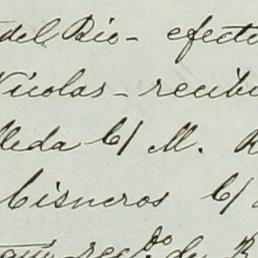 del Rio - efecto
Nicolas - recibi
lleda C/ M. R
Cisneros C/
recdo de R